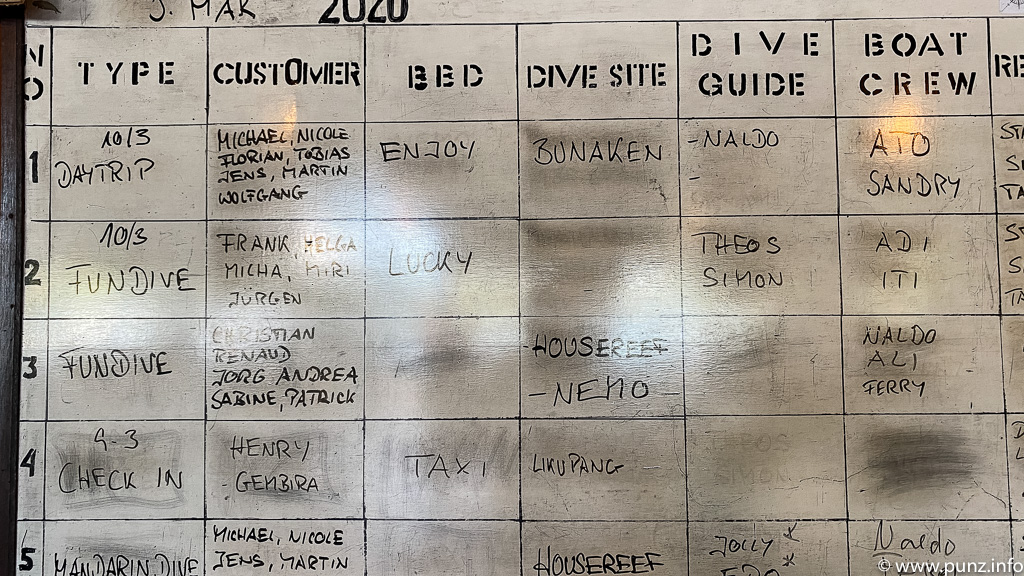 5. MAR 2020
NO TYPE CUSTOMER BED DIVE SITE DIVE GUIDE BOAT CREW
1
10/3
DAYTRIP
MICHAEL, NICOLE
FLORIAN, TOBIAS
JENS, MARTIN
WOLFGANG
ENJOY
BUNAKEN
-NALDO
-
ATO
SANDRY
2
10/3
FUNDIVE
FRANK, HELGA
MICHA, MIRI
JÜRGEN
LUCKY
THEOS
SIMON
ADI
ITI
3
FUNDIVE
CHRISTIAN
RENAUD
JÖRG ANDREA
SABINE, PATRICK
-HOUSEREEF
-NEMO
NALDO
ALI
FERRY
4
9-3
CHECK IN
HENRY
GEMBIRA
TAXI
LIKUPANG
5
MANDARIN DIVE
MICHAEL, NICOLE
JENS, MARTIN
HOUSEREEF
JOLLY
EDO
Naldo
© www.punz.info